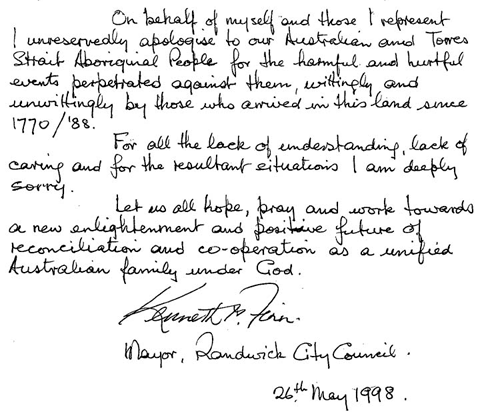 On behalf of myself and those I represent
I unreservedly apologise to our Australian and Torres
Strait Aboriginal People for the harmful and hurtful
events perpetrated against them, wittingly and
unwittingly by those who arrived in this land since
1770/'88.
For all the lack of understanding, lack of
caring and for the resultant situations I am deeply
sorry.
Let us all hope, pray and work towards
a new enlightenment and positive future of
reconciliation and co-operation as a unified
Australian family under God.
Kenneth M. Finn.
Mayor, Randwick City Council.
26th May 1998.